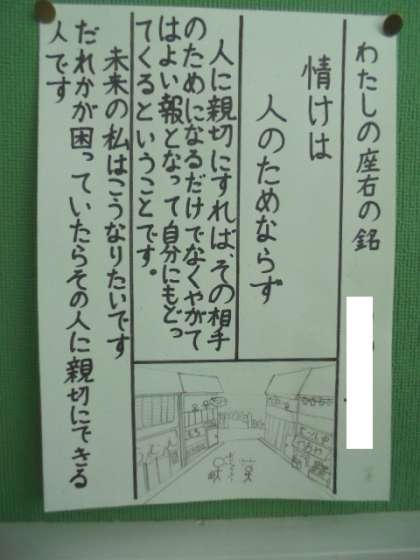 わたしの座右の銘
情けは
人のためならず
人に親切にすれば、その相手
のためになるだけでなくやがて
はよい報となって自分にもどっ
てくるということです。
未来の私はこうなりたいです
だれかが困っていたらその人に親切にできる
人です